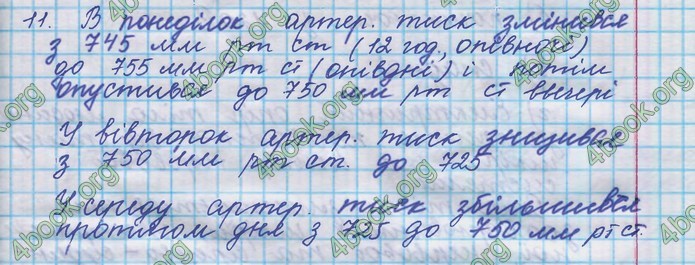 11. В понеділок артер. тиск змінився
з 745 мм рт ст (12 год, опівночі)
до 755 мм рт ст (опівдні) і потім
опустився до 750 мм рт ст ввечері
У вівторок артер. тиск знизився
з 750 мм рт ст. до 725
У середу артер. тиск збільшився
протягом дня з 725 до 750 мм рт ст.
4book.org